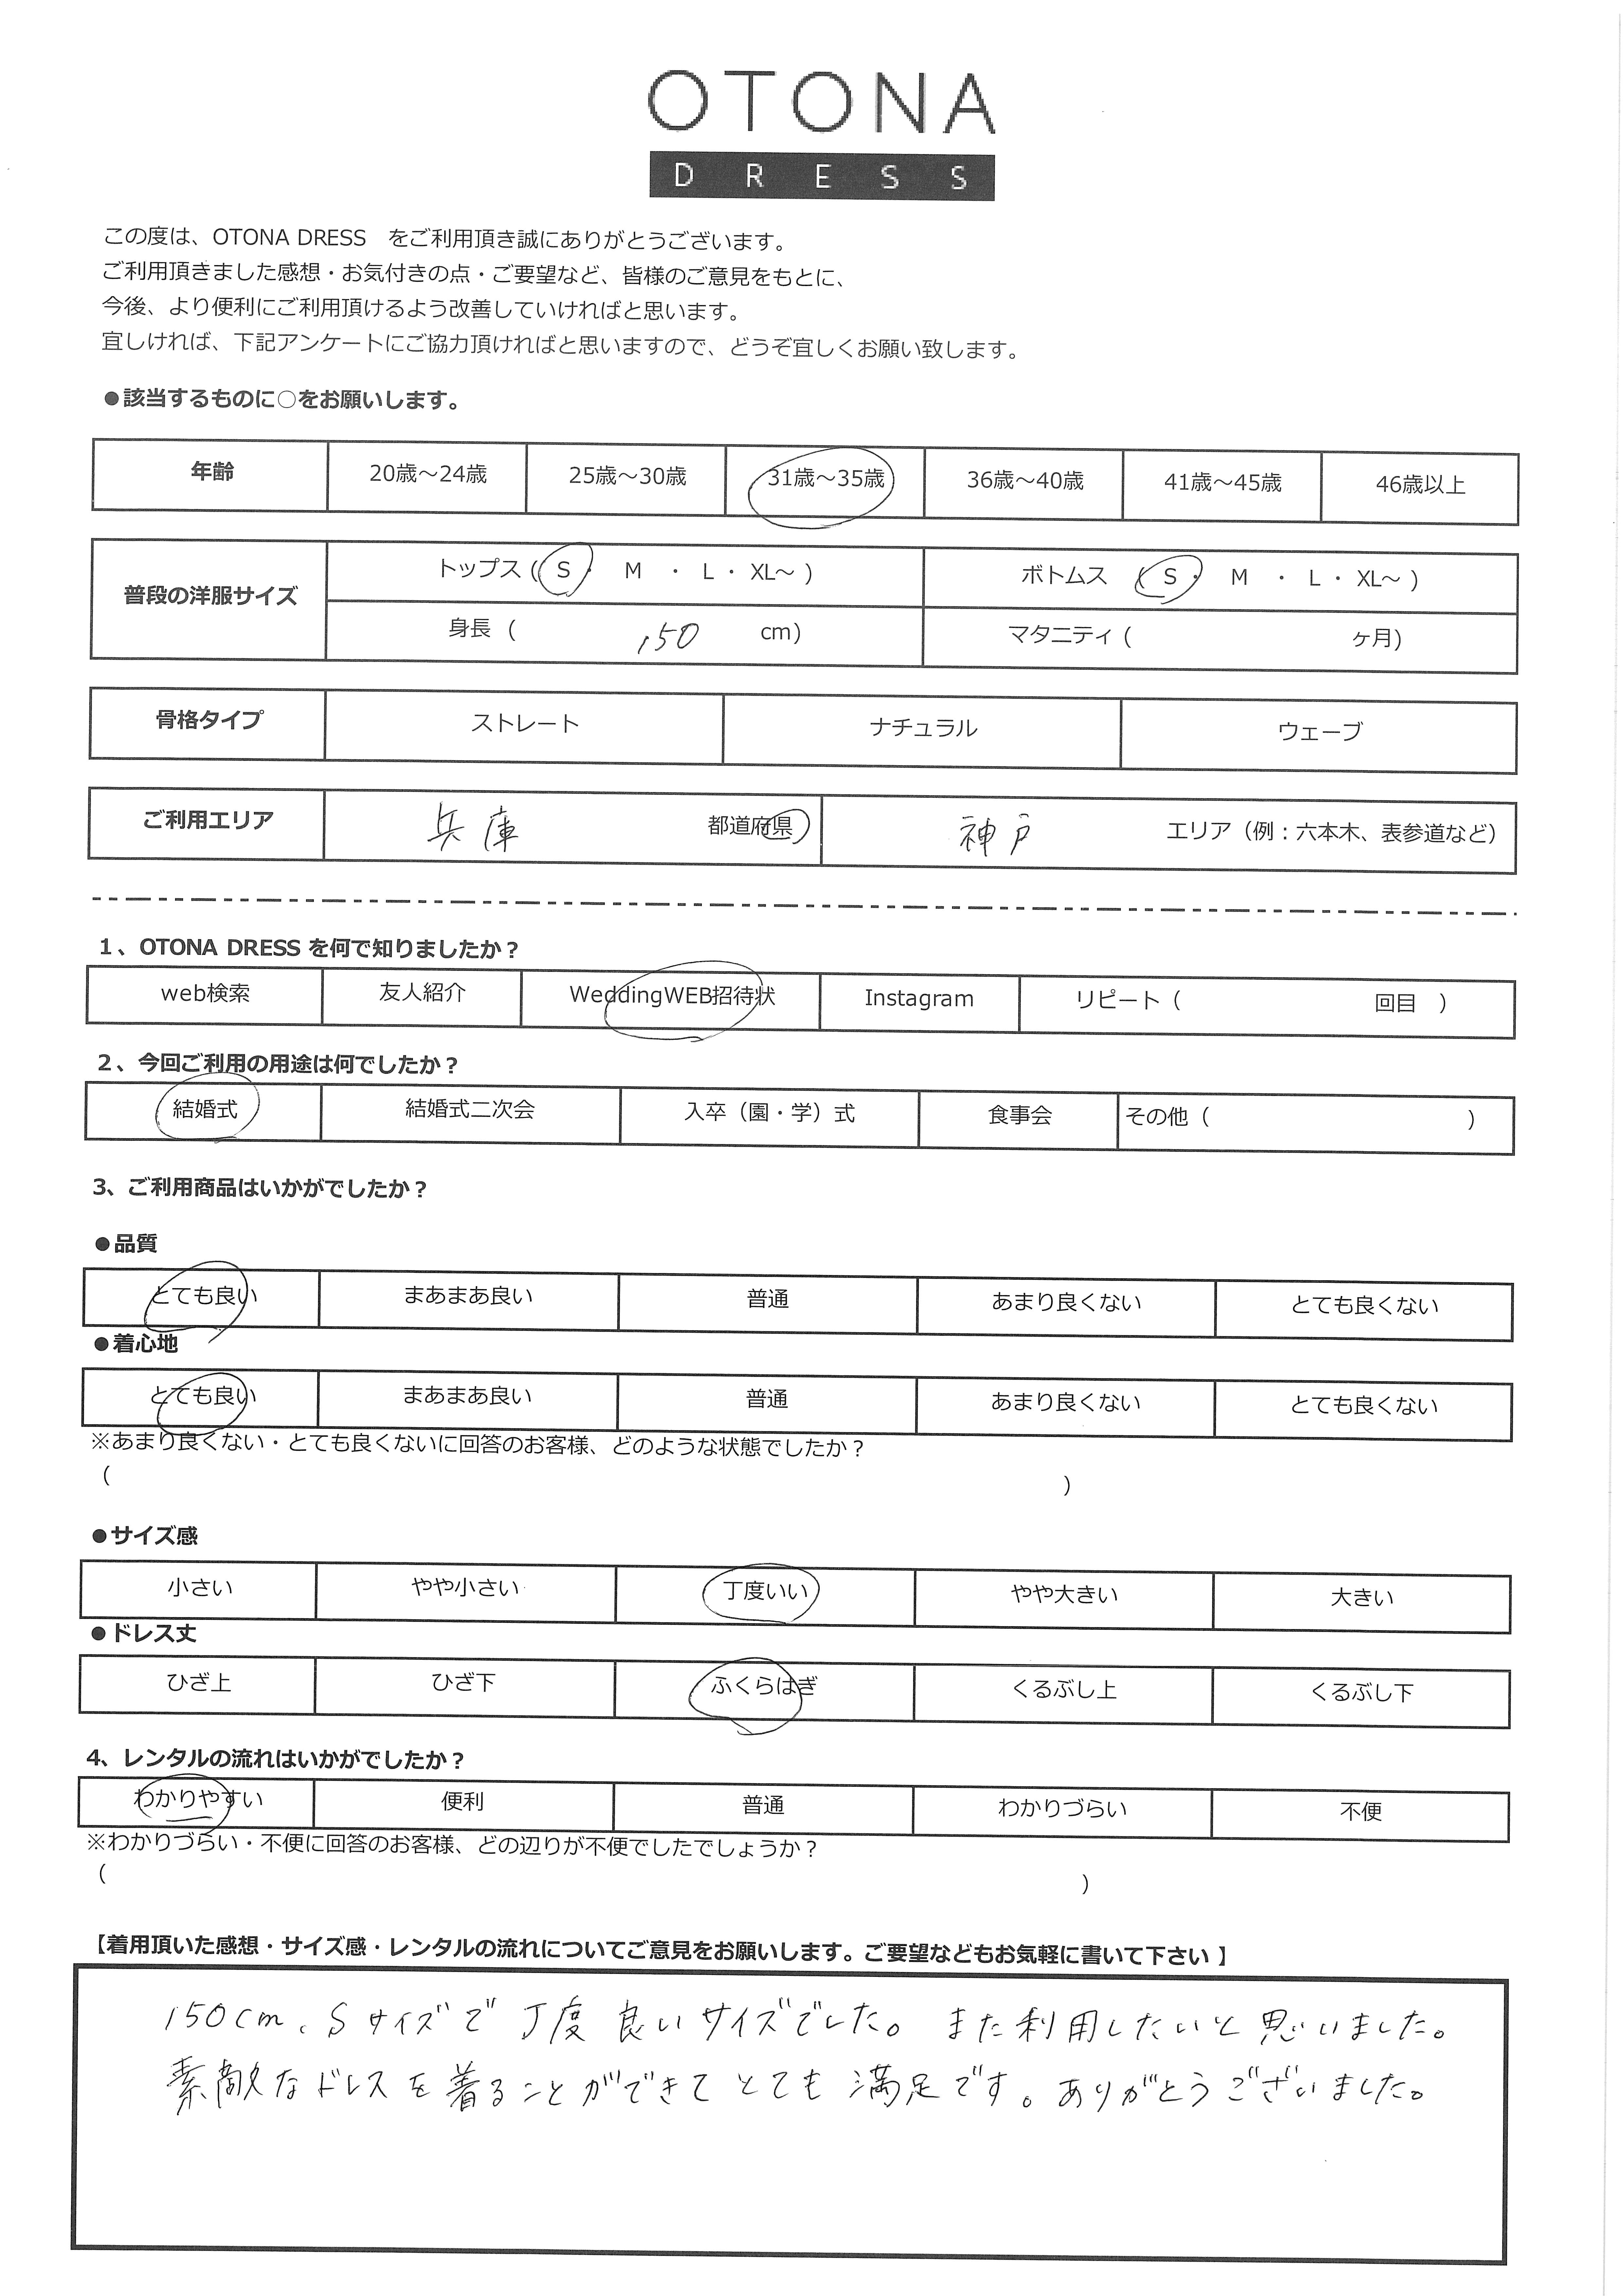 OTONA
DRESS
この度は、OTONA DRESS　をご利用頂き誠にありがとうございます。
ご利用頂きました感想・お気付きの点・ご要望など、皆様のご意見をもとに、
今後、より便利にご利用頂けるよう改善していければと思います。
宜しければ、下記アンケートにご協力頂ければと思いますので、どうぞ宜しくお願い致します。
●該当するものに○をお願いします。
年齢 20歳～24歳 25歳～30歳 31歳～35歳 36歳～40歳 41歳～45歳 46歳以上
普段の洋服サイズ トップス（ S ・ M ・ L ・ XL～ ） ボトムス （ S ・ M ・ L ・ XL～ ）
身長（ 150 cm） マタニティ（ ヶ月）
骨格タイプ ストレート ナチュラル ウェーブ
ご利用エリア 兵庫 都道府県 神戸 エリア（例：六本木、表参道など）
1、OTONA DRESS を何で知りましたか？
web検索 友人紹介 WeddingWEB招待状 Instagram リピート（ 回目 ）
2、今回ご利用の用途は何でしたか？
結婚式 結婚式二次会 入卒（園・学）式 食事会 その他（ ）
3、ご利用商品はいかがでしたか？
●品質
とても良い まあまあ良い 普通 あまり良くない とても良くない
●着心地
とても良い まあまあ良い 普通 あまり良くない とても良くない
※あまり良くない・とても良くないに回答のお客様、どのような状態でしたか？
（ ）
●サイズ感
小さい やや小さい 丁度いい やや大きい 大きい
●ドレス丈
ひざ上 ひざ下 ふくらはぎ くるぶし上 くるぶし下
4、レンタルの流れはいかがでしたか？
わかりやすい 便利 普通 わかりづらい 不便
※わかりづらい・不便に回答のお客様、どの辺りが不便でしたでしょうか？
（ ）
【着用頂いた感想・サイズ感・レンタルの流れについてご意見をお願いします。ご要望などもお気軽に書いて下さい 】
150cm、Sサイズで丁度良いサイズでした。また利用したいと思いました。
素敵なドレスを着ることができてとても満足です。ありがとうございました。